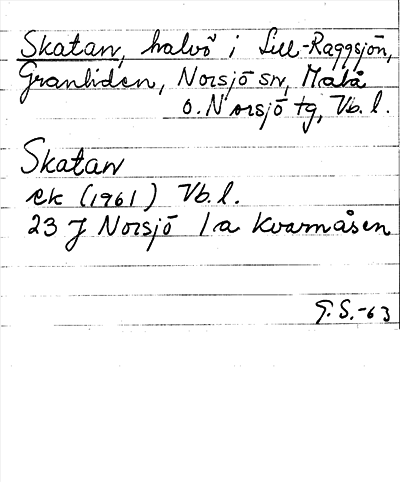 Skatan, halvö i Lill-Raggsjön,
Granliden, Norsjö sn, Malå
o. Norsjö tg, Vb. l.
Skatan
ek (1961) Vb. l.
23 J Norsjö 1a Kvarnåsen
G. S. -63